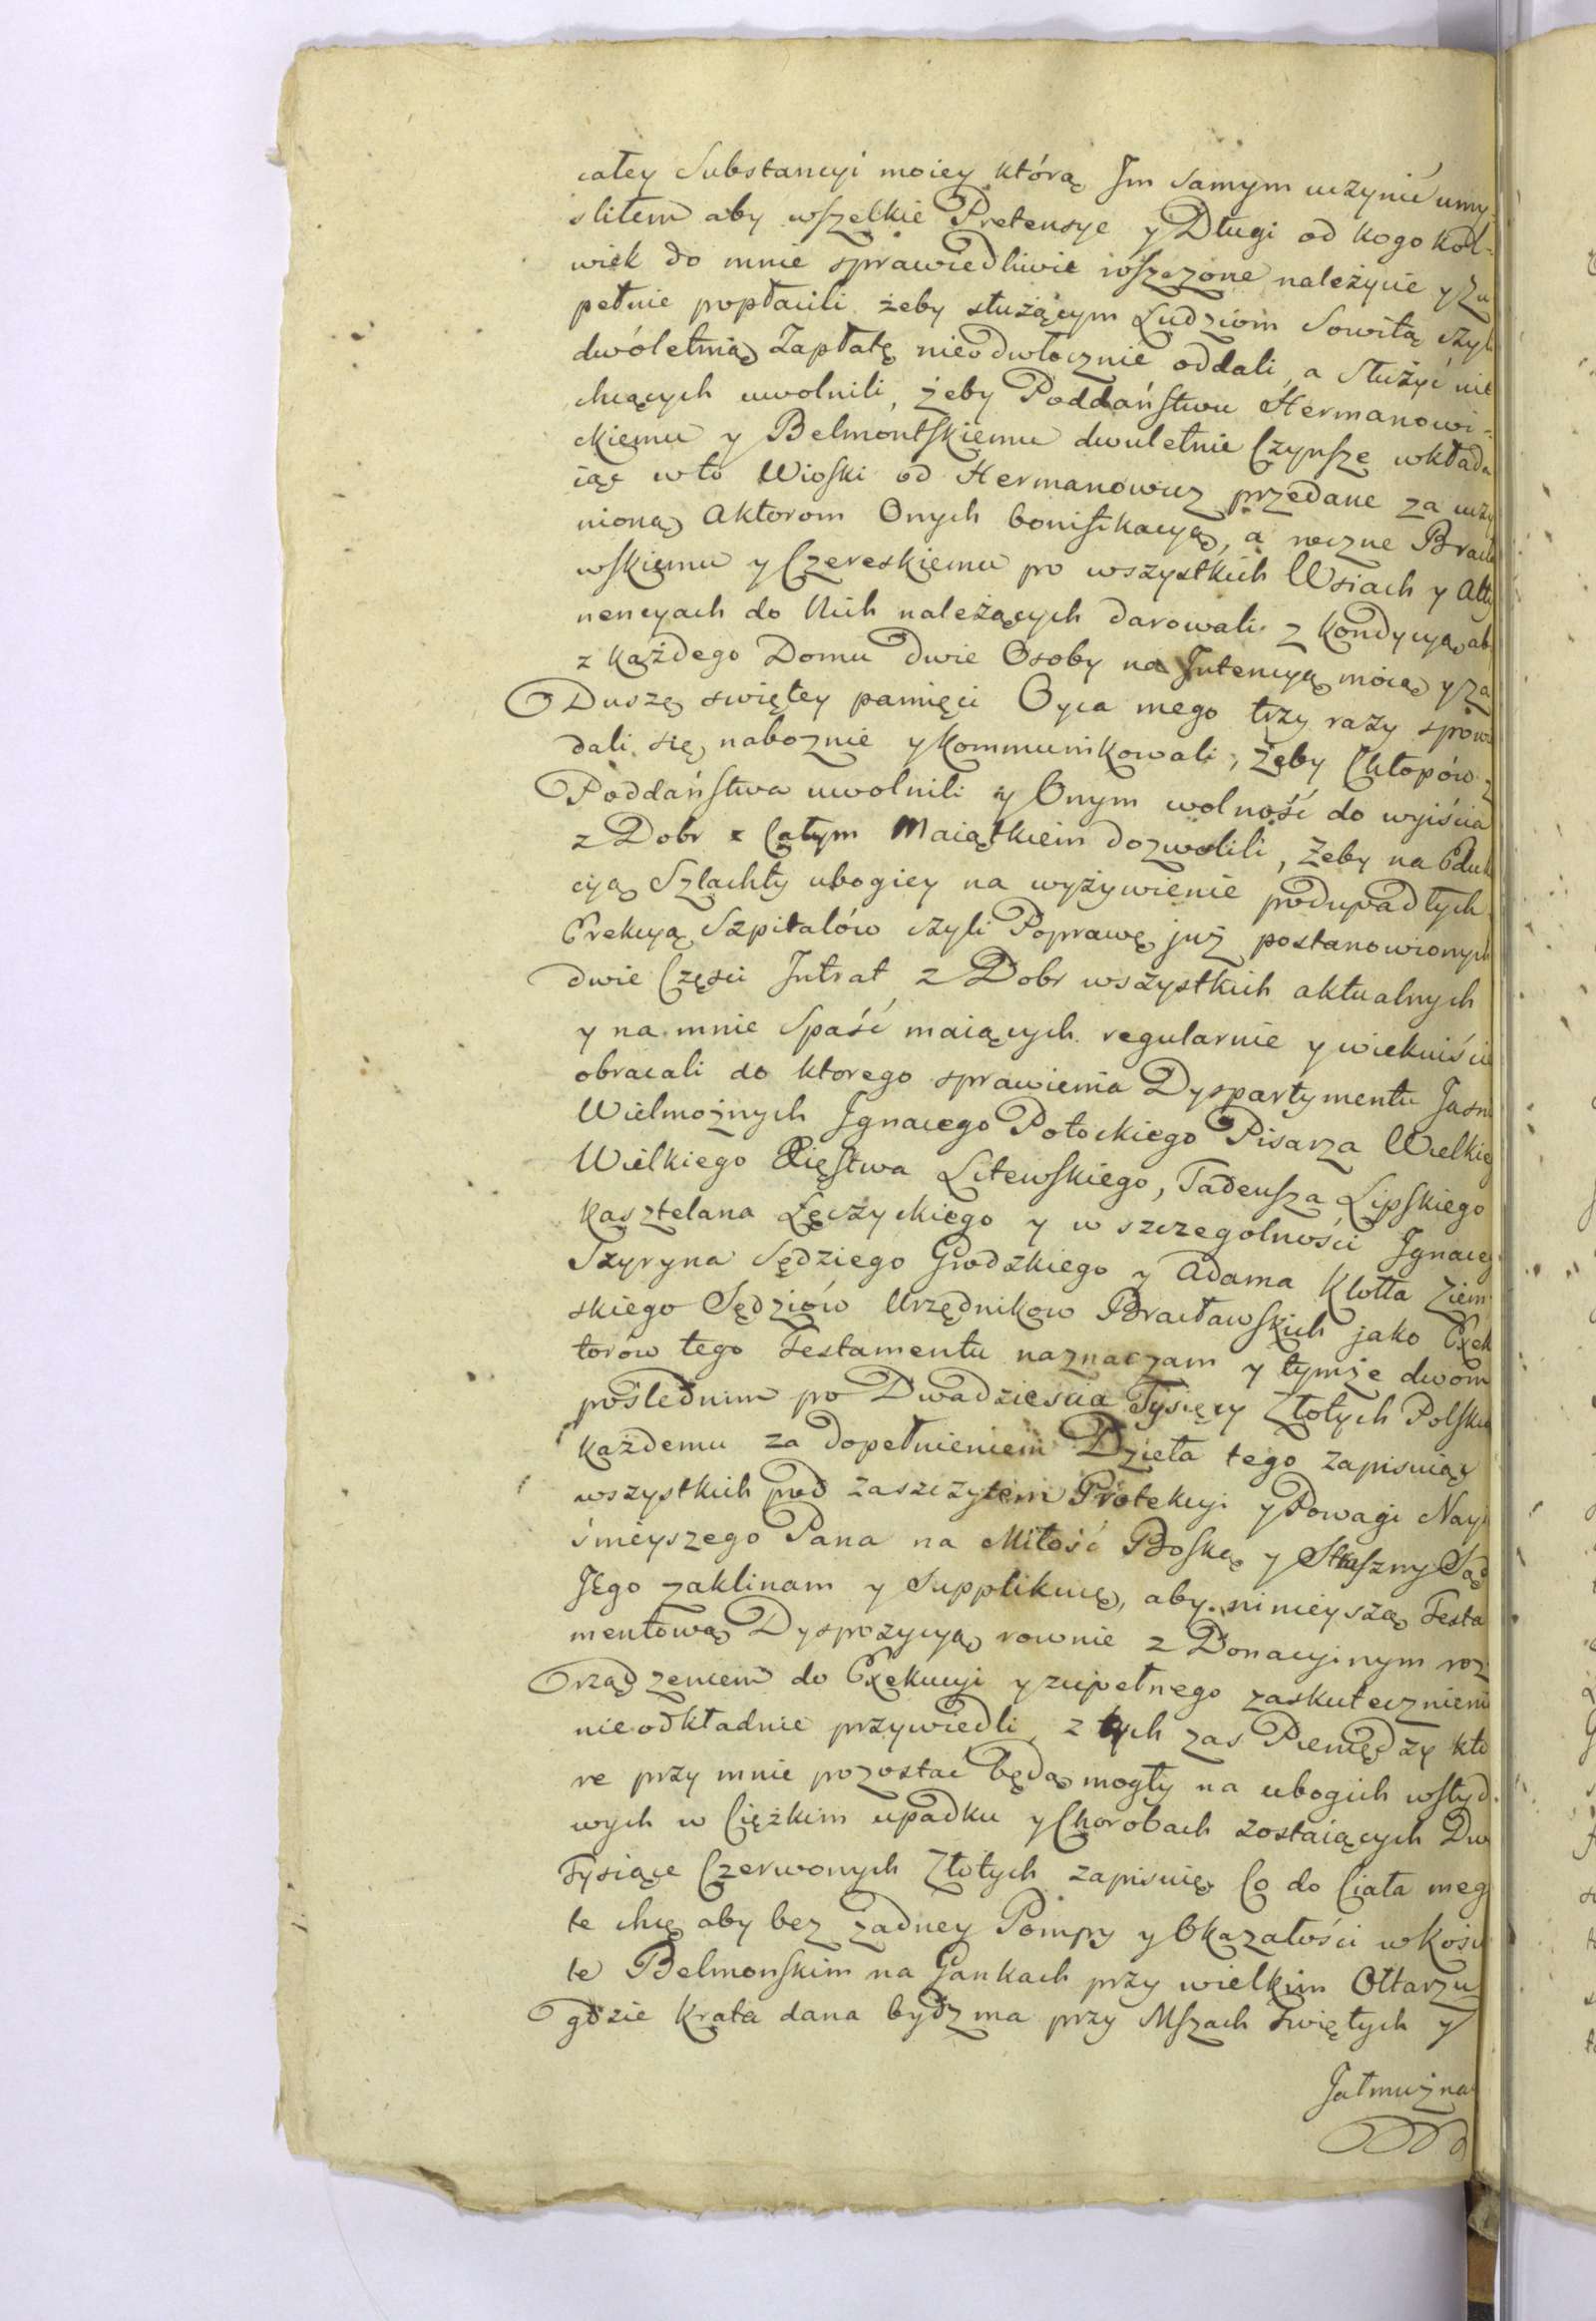 całey Substancyi moiey którą Jm samym uczynić umy-
śliłem aby wszelkie Pretensye y Długi od kogo kol-
wiek do mnie sprawiedliwie wszczone należycie y Zu
pełnie popłacili żeby służącym Ludziom Sowitą czyli
dwóletnią Zapłatę nieodwłocznie oddali, a Służyć nie
chcących uwolnili, żeby Poddaństwu Hermanowi-
ckiemu y Belmontskiemu dwuletnie Czynsze wkłada
iąc w to Wioski od Hermanowicz przedane za uczy
nioną Aktorom Onych bonifikacyą, a roczne Bracła
wskiemu y Czereskiemu po wszystkich Wsiach y Atty
nencyach do Nich należących darowali z kondycyą ab
z każdego Domu dwie Osoby na Jntencyą moią y za
Duszę swiętey pamięci Oyca mego trzy razy spowi
dali się naboznie y kommunikowali, żeby Chłopów z
Poddaństwa uwolnili y Onym wolność do wyiścia
z Dobr z Całym Maiątkiem dozwolili, żeby na Eduk
cyą Szlachty ubogiey na wyżywienie podupadłych
Erekcyą Szpitalów czyli Poprawę już postanowionych
dwie Części Jntrat z Dobr wszystkich aktualnych
y na mnie Spaść maiących regularnie y wiekuiście
obracali do ktorego sprawienia Dyspartymentu Jasn
Wielmożnych Jgnacego Potockiego Pisarza Wielkieg
Wielkiego Xięstwa Litewskiego, Tadeusza Lipskiego
Kasztelana Łęczyckiego y w szczegolności Jgnaceg
Szyryna Sędziego Grodzkiego y Adama Klotta Ziem-
skiego Sędziów Urzędnikow Bracławskich jako Exek
torów tego Testamentu naznaczam y tymże dwom
poślednim po Dwadziescia Tysięcy Złotych Polskich
każdemu za dopełnieniem Dzieła tego zapisuiąc
wszystkich pod zaszczytem Protekcyi y Powagi Nayi
śnieyszego Pana na Miłość Boską y Straszny Sąd
JEgo zaklinam y Supplikuię, aby ninieyszą Testa
mentową Dyspozycyą rownie z Donacyinym roz
rządzeniem do Exekucyi y zupełnego zaskutecznieni
nieodkładnie przywiedli, z tych zas Pieniędzy któ
re przy mnie pozostać będą mogły na ubogich wstyd-
wych w Ciężkim upadku y Chorobach zostaiących Dw
Tysiące Czerwonych Złotych zapisuię. Co do Ciała meg
te chcę aby bez żadney Pompy y Okazałości w Kości
le Belmonskim na Gankach przy wielkim Ołtarzu
gdzie Krata dana bydz ma przy Mszach Swiętych y
Jałmużna